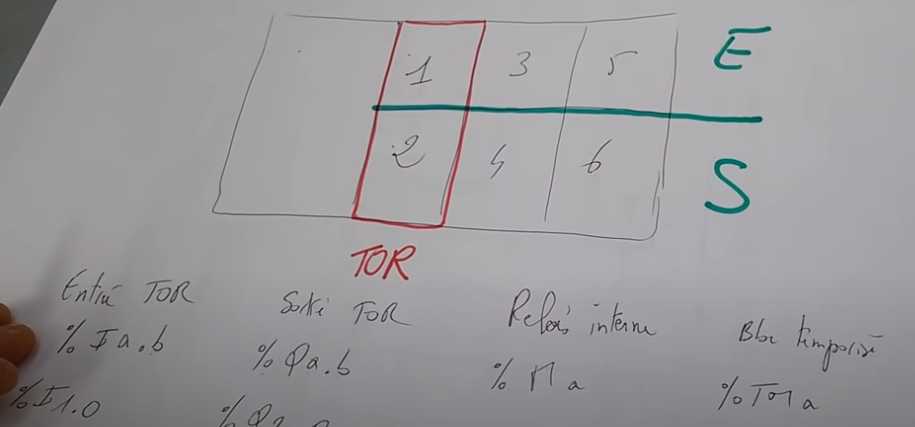 1 3 5 E
2 4 6 S
TOR
Entrée TOR
% Ia.b
%I1.0
Sortie TOR
% Qa.b
Relais interne
% Ma
Bloc temporisé
% TMa